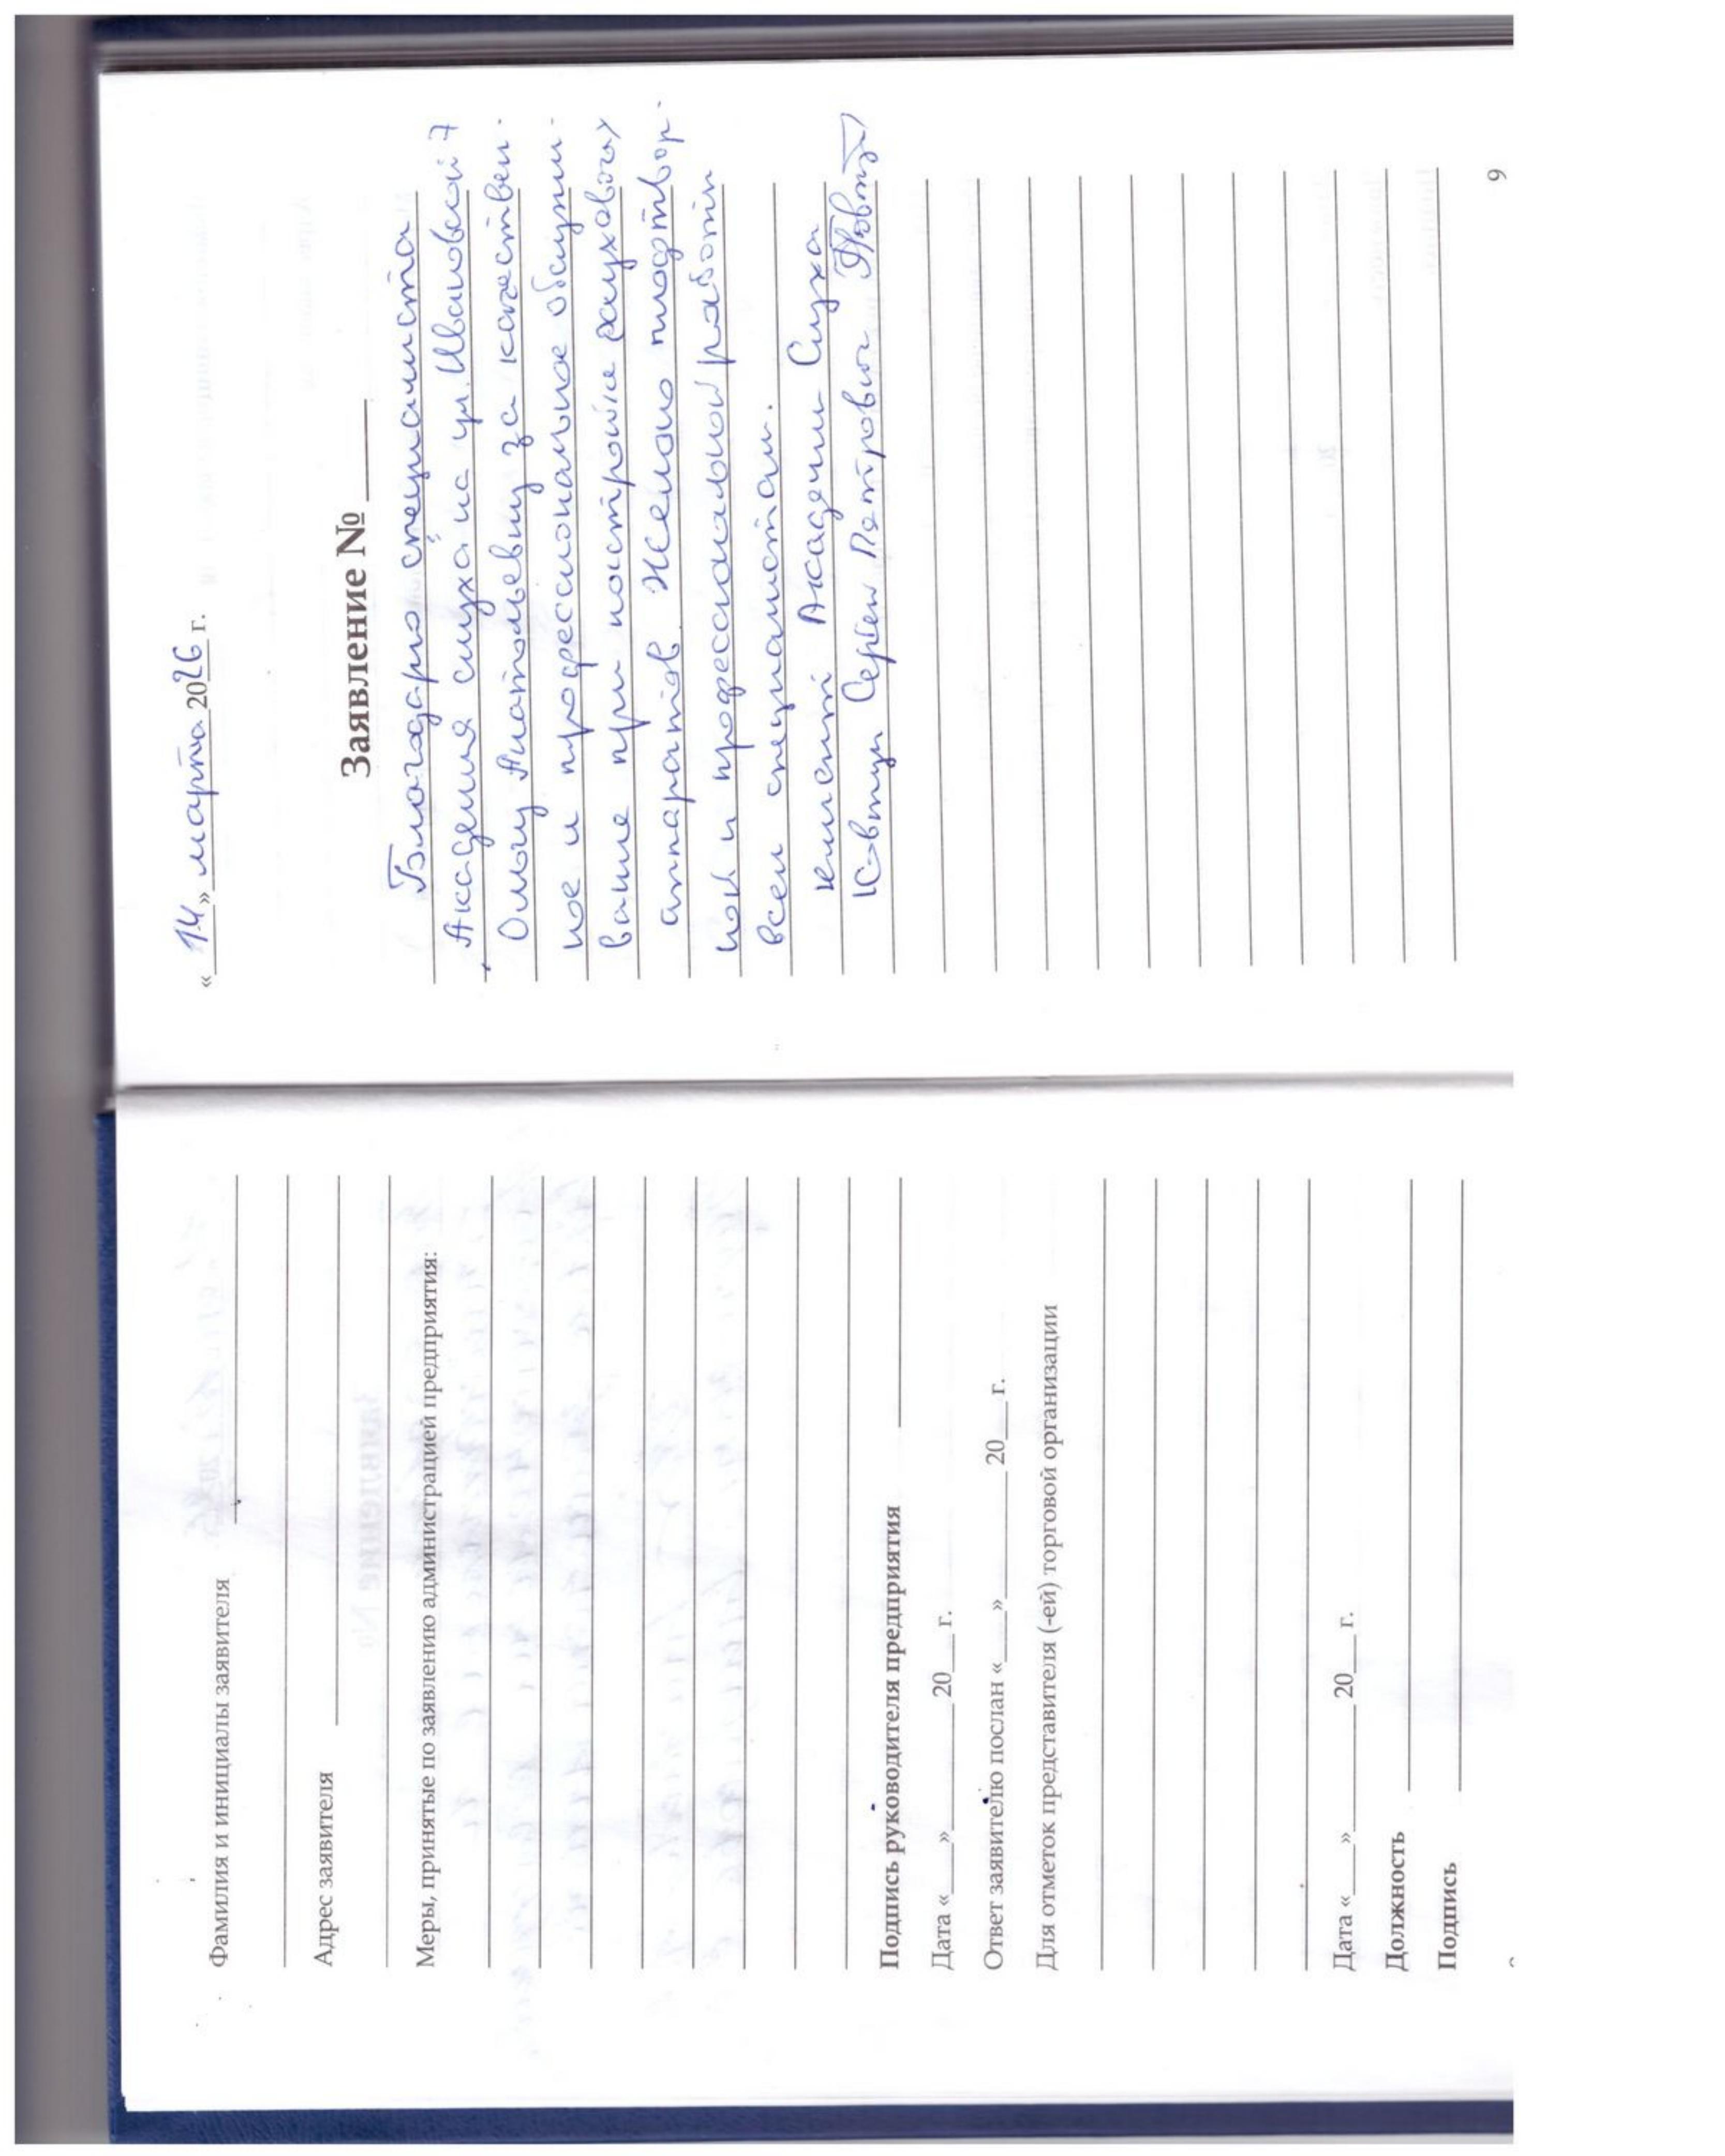 Фамилия и инициалы заявителя
Адрес заявителя
Меры, принятые по заявлению администрацией предприятия:
Подпись руководителя предприятия
Дата «___»________ 20___ г.
Ответ заявителю послан «___»________ 20___ г.
Для отметок представителя (-ей) торговой организации
Дата «___»________ 20___ г.
Должность
Подпись
«14» марта 2026 г.
Заявление №
Благодарю специалиста
Академия слуха на ул. Ивановской 7
Ольгу Анатольевну за качествен-
ное и профессиональное обслужи-
вание при настройке слуховых
аппаратов. Желаю плодотвор-
ной и профессиональной работы
всем специалистам.
клиент Академии Слуха
Сергей Петрович
9